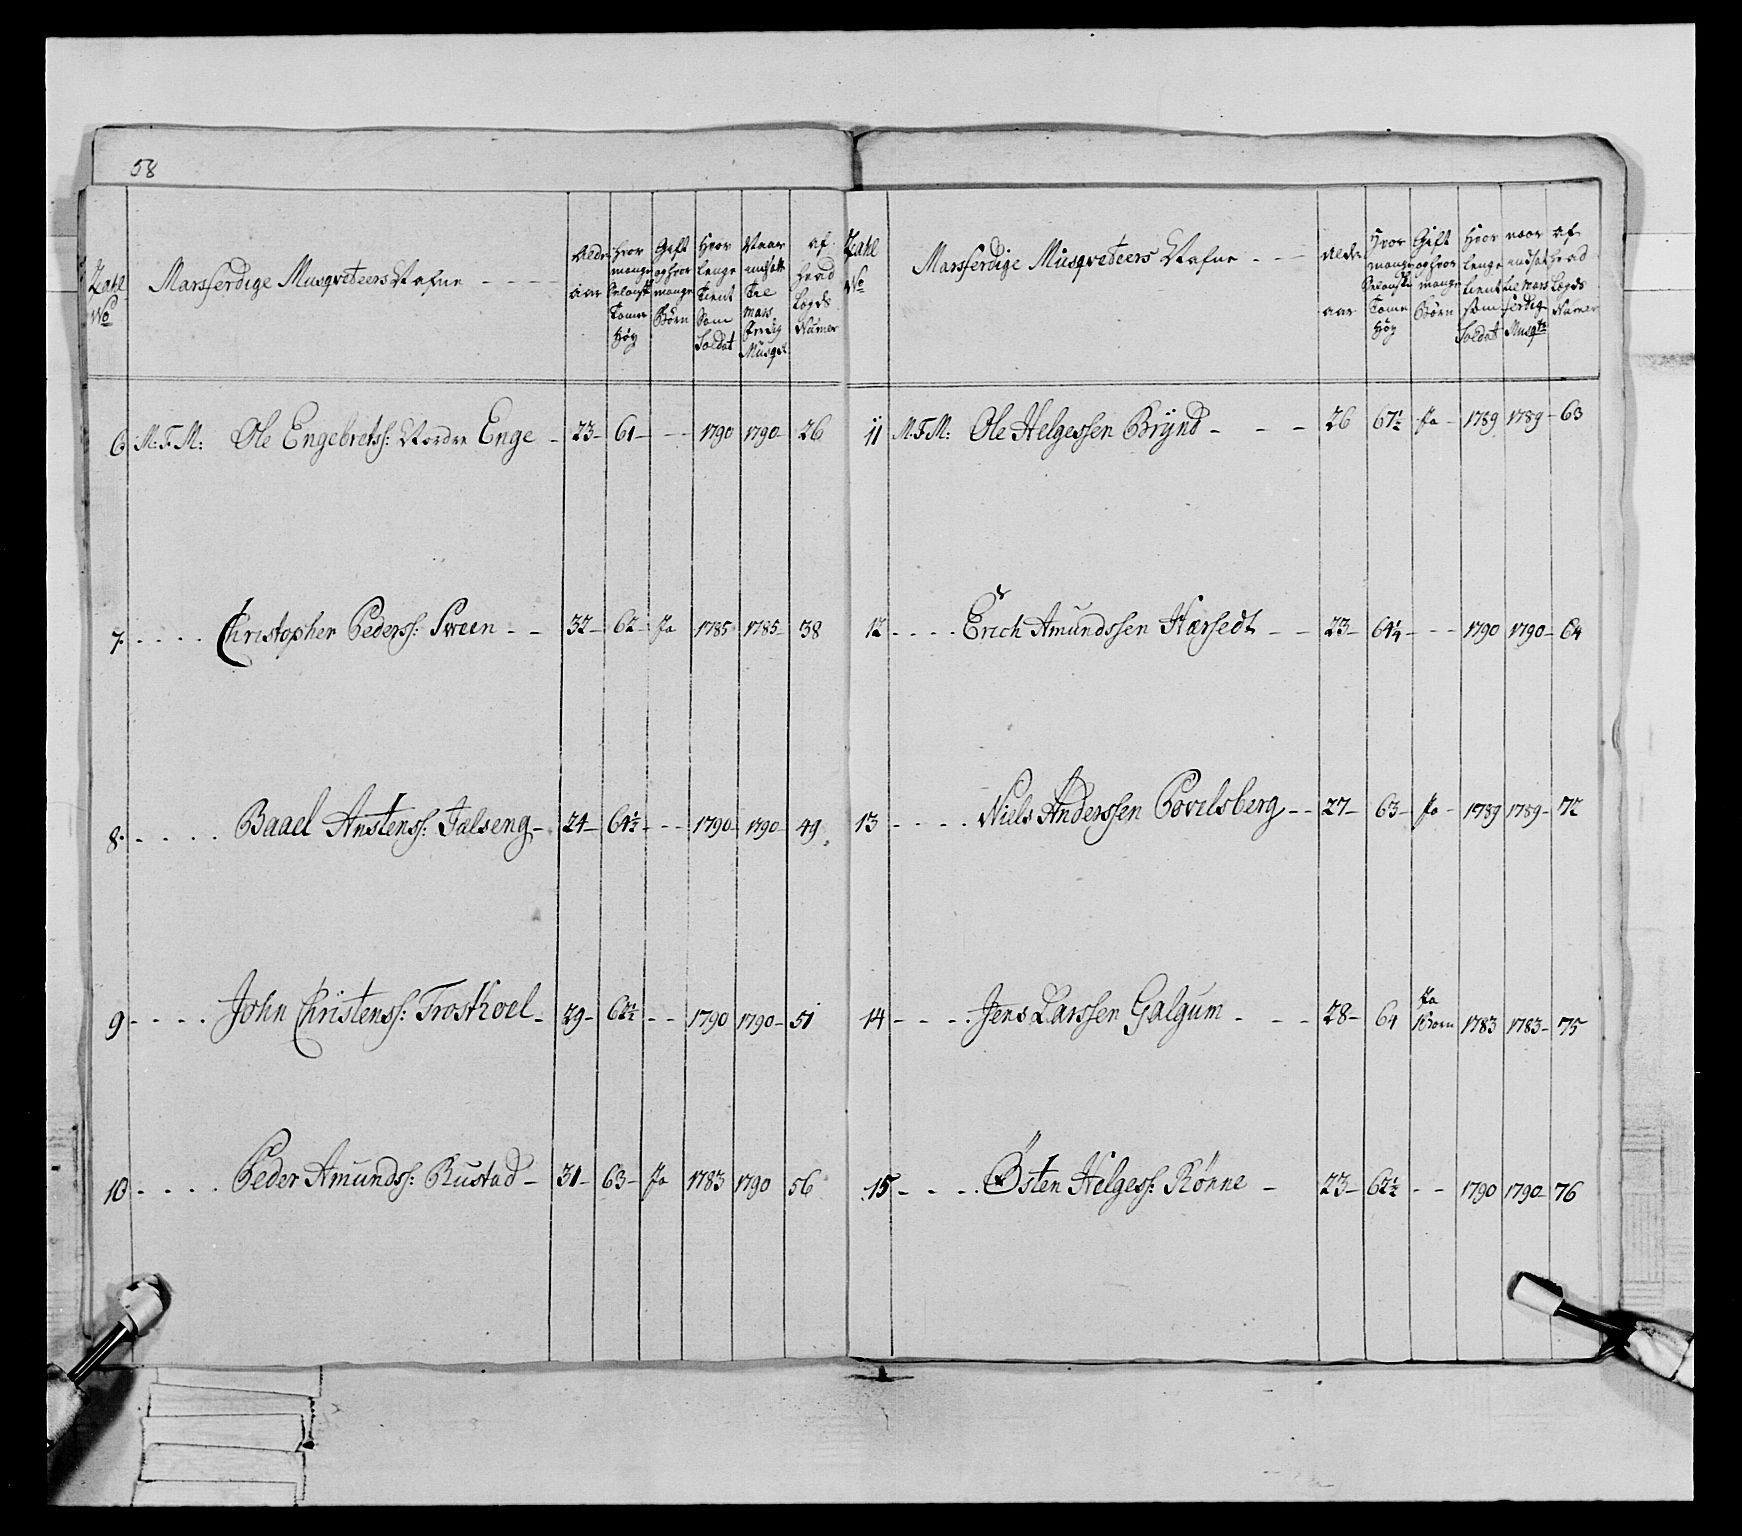 58
Zahl No
Marsferdige Musqveteers Nafne - - - -
Alder aar
Hvor mange Selansk Tomer Høy
Gift og hvor mange Børn
Hvor lenge tient Som Soldat
Naar indsatt til mars ferdig Musqt
af hvad Lægds Numer
6 M: F: M: Ole Engebretss: Nordre Enge - 23 - 61 - - - 1790 1790 - 26
7 - - - - Christopher Pederss: Sveen - - 32 - 62 - Ja 1785 1785 - 38
8 - - - - Baael Anstenss: Falseng - 24 - 64½ - - - 1790 - 1790 - 49
9 - - - - John Christenss: Frostkoel - 29 - 62½ - - 1790 1790 - 51
10 - - - - Peder Amundss: Rustad - 31 - 63 - Ja 1783 1790 56
Zahl No
Marsferdige Musqveteers Nafne - - -
Alder aar
Hvor mange Selanske Tomer Høy
Gift og hvor mange Børn
Hvor lenge tient som Soldat
naar indsat til mars ferdig Musqtr
af hvad Lægds Numer
11 M: F: M: Ole Helgessen Brÿnd - - - 26 67½ Ja - 1789 1789 - 63
12 - - - - Erich Amundssen Harsedt - - 23 - 64¼ - - - 1790 1790 - 64
13 - - - - Niels Anderssen Povelsberg - - 27 - 63 - Ja - 1789 1789 - 72
14 - - - - Jens Larssen Galgum - - - 28 - 64 Ja 1 Børn 1783 1783 - 75
15 - - - - Østen Helgess: Rønne - 23 - 62½ - - 1790 1790 - 76